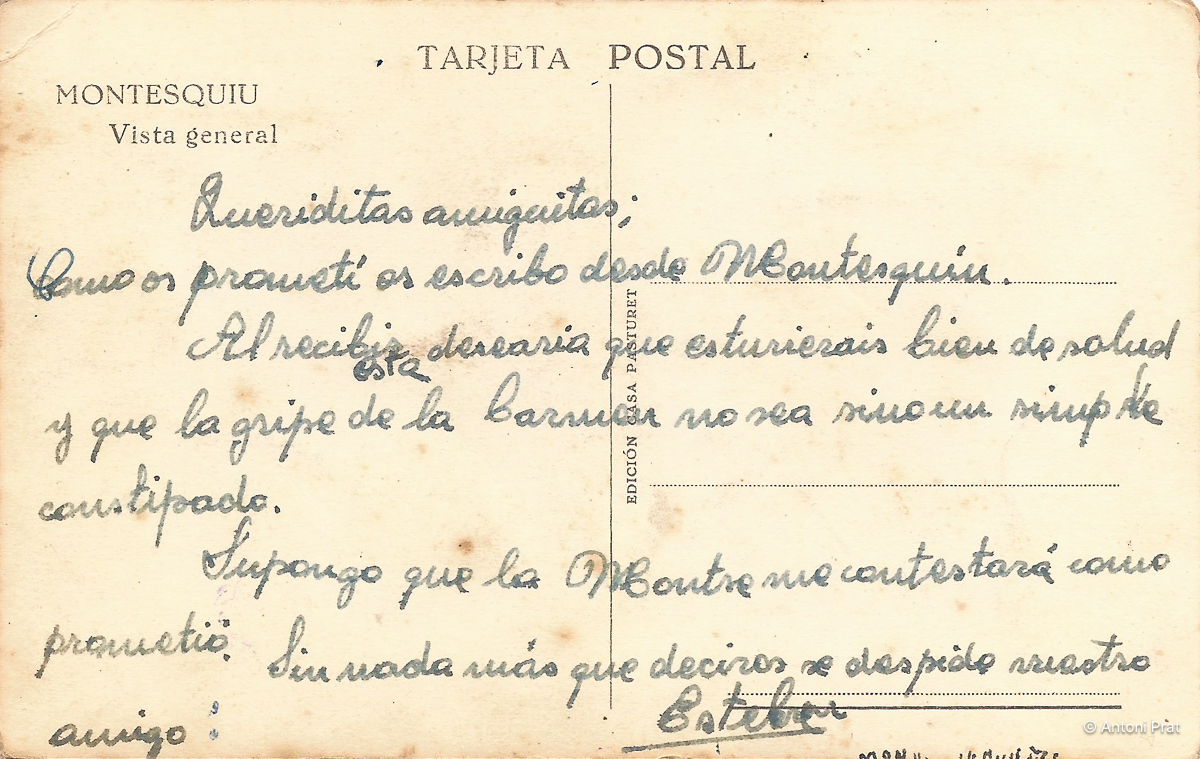 TARJETA POSTAL
MONTESQUIU
Vista general
Queriditas amiguitas;
Como os prometí os escribo desde Montesquiu.
Al recibir esta desearia que estuvierais bien de salud
y que la gripe de la Carmen no sea sino un simple
constipado.
Supongo que la Montse me contestará como
prometió.
Sin nada más que deciros se despide vuestro
amigo:
Esteban
EDICIÓN CASA PASTURET
© Antoni Prat